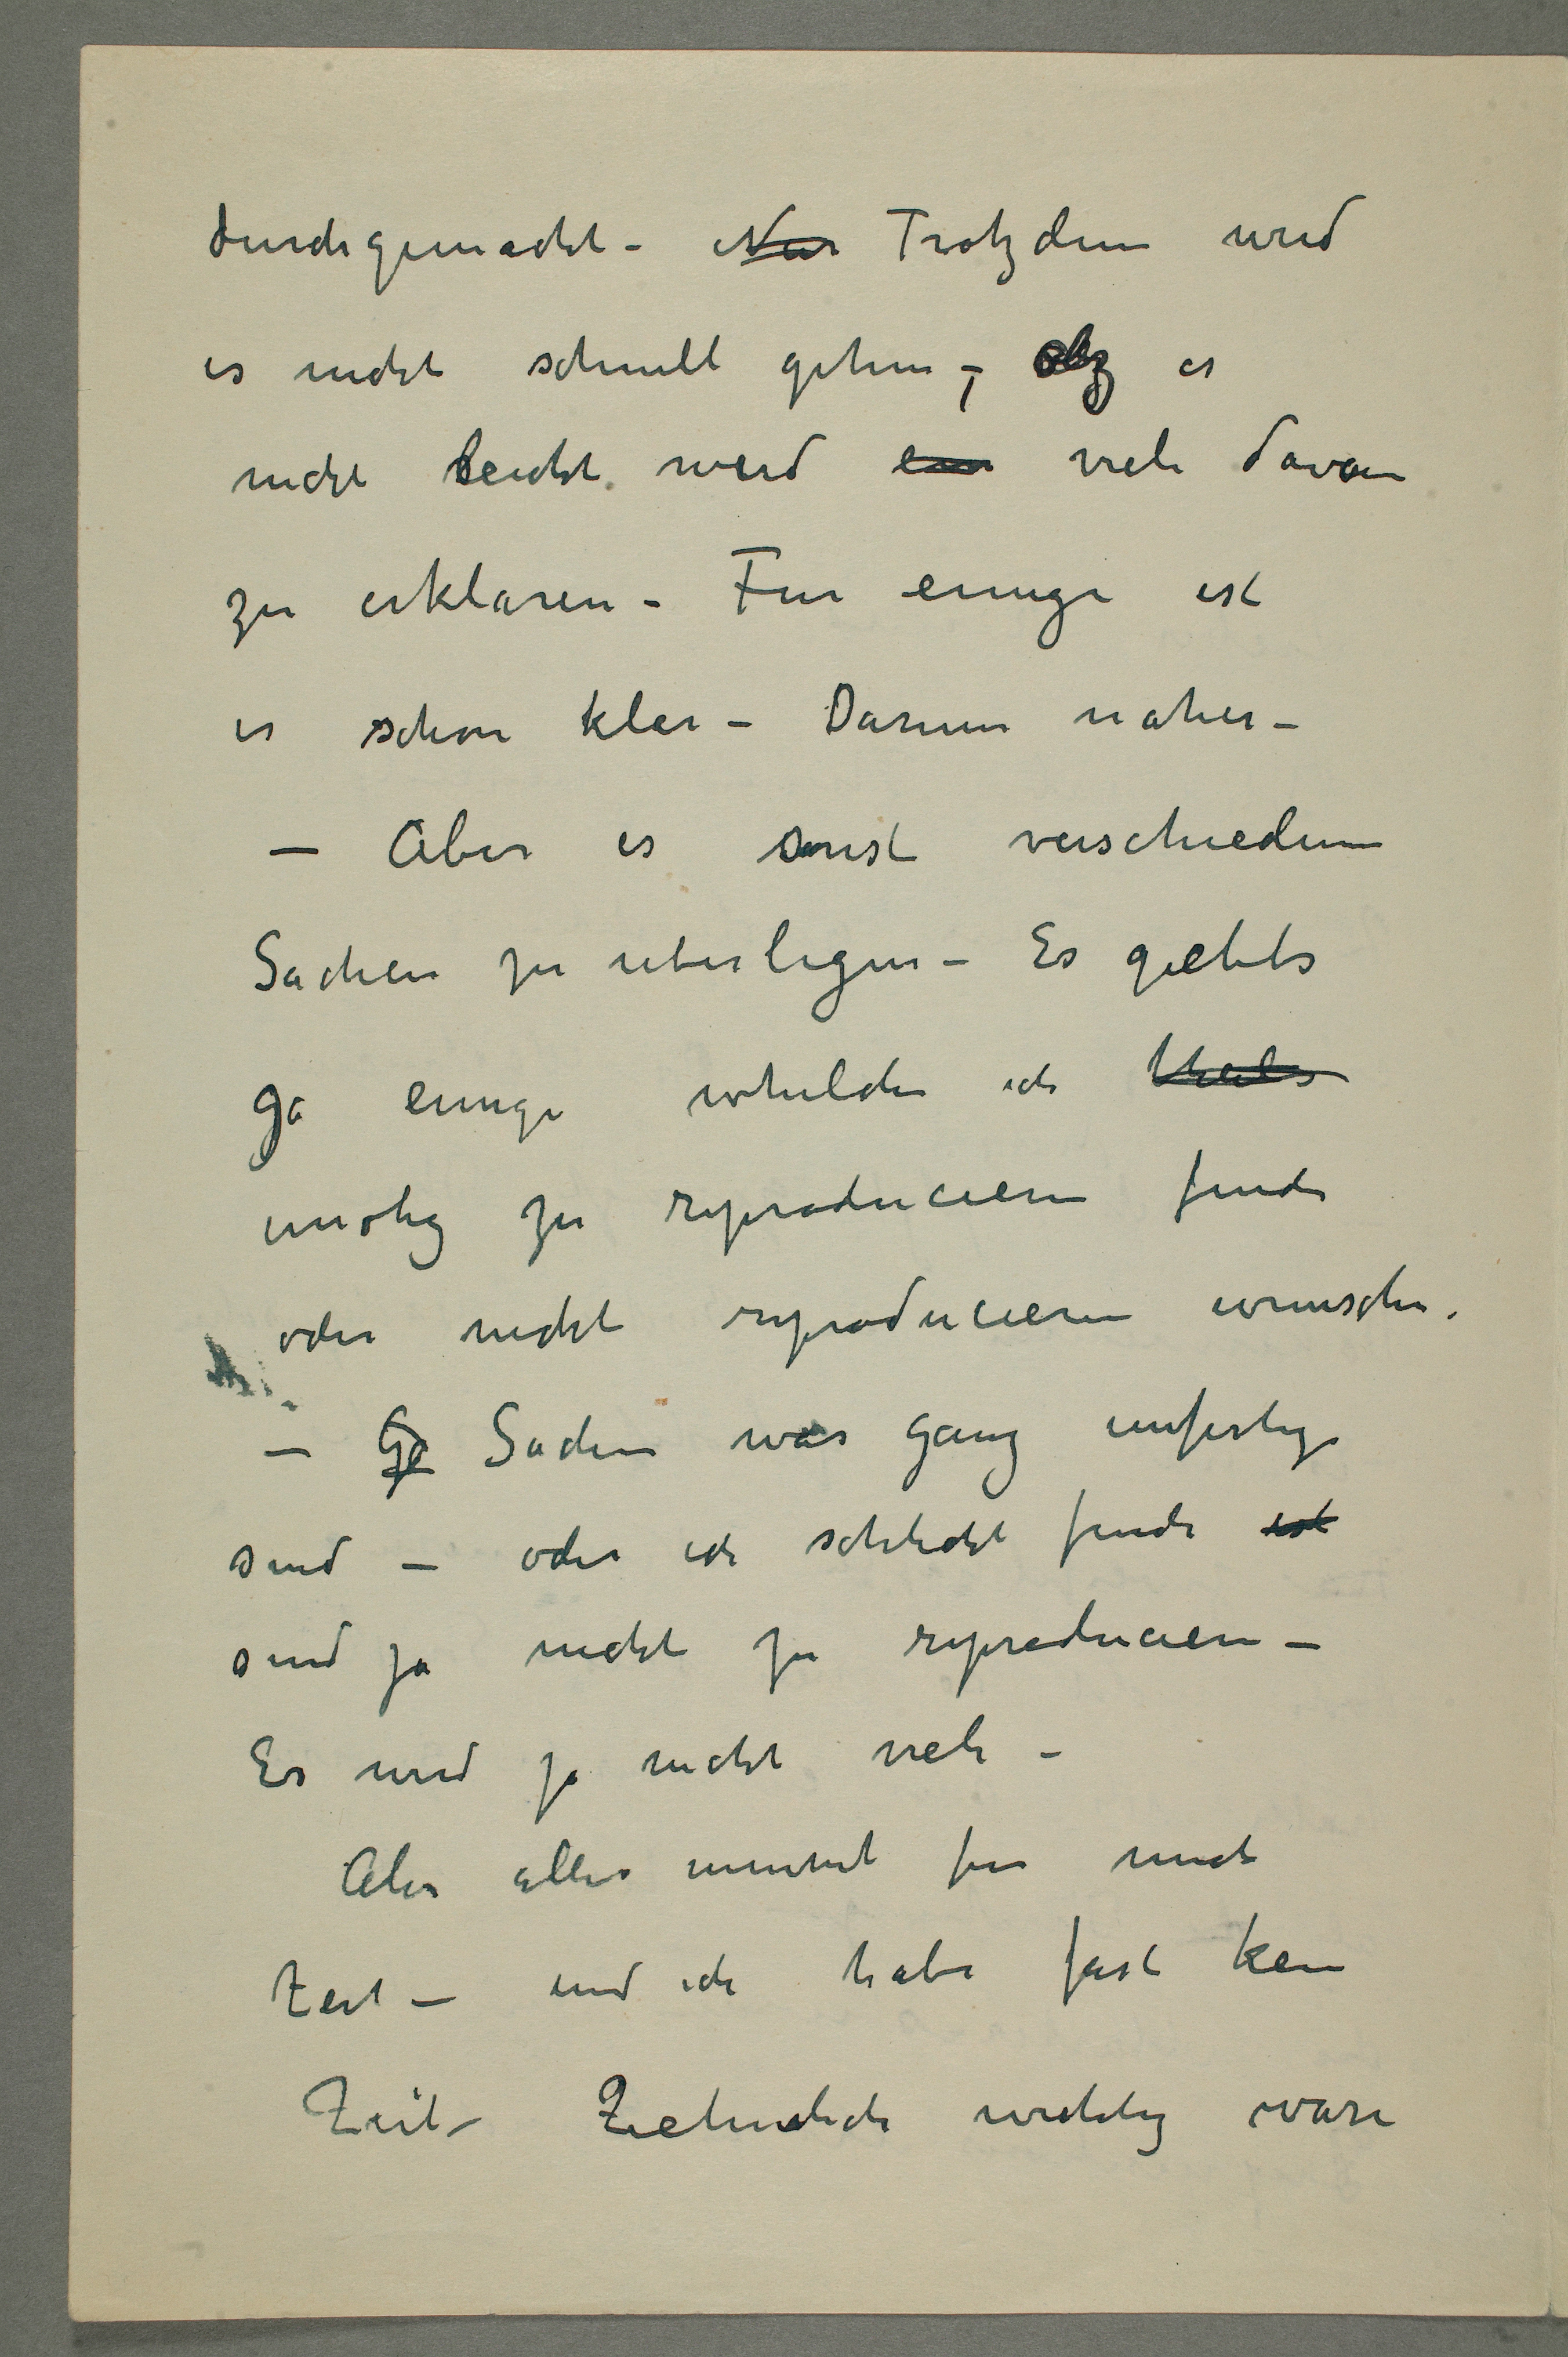 durchgemacht – ~~Nur~~ Trotzdem wird
es nicht schnell gehen –, es
nicht leicht wird ~~ein~~ viele davon
zu erklaren – Fur einige ist
es schon klar – Darum naher –
– Aber es sonst verschiedene
Sachen zu uberlegen – Es giebts
ga einige whelche ich ~~theils~~
unotig zu reproducieren finde
oder nicht reproducieren wunsche.
– ~~Ga~~ Sachen was ganz unfertige
sind – oder ich schlecht finde ~~ist~~
sind ja nicht zu reproducieren –
Es wird ja nicht viele –
Aber alles nimmt fur mich
Zeit – und ich habe fast kein
Zeit – Ziehmlich wichtig ware